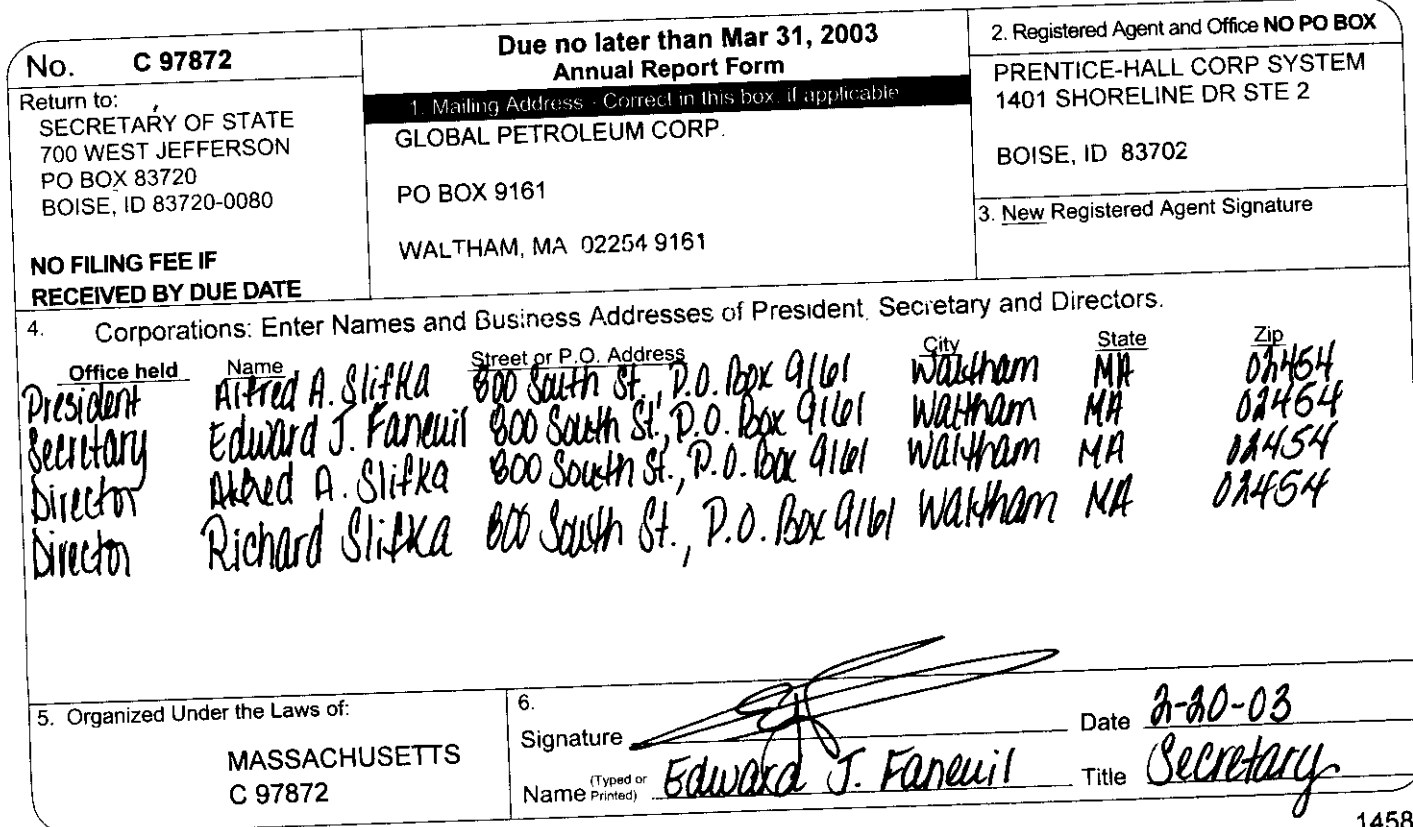 No. C 97872
Return to:
SECRETARY OF STATE
700 WEST JEFFERSON
PO BOX 83720
BOISE, ID 83720-0080
NO FILING FEE IF
RECEIVED BY DUE DATE
Due no later than Mar 31, 2003
Annual Report Form
1. Mailing Address - Correct in this box, if applicable
GLOBAL PETROLEUM CORP.
PO BOX 9161
WALTHAM, MA 02254 9161
2. Registered Agent and Office NO PO BOX
PRENTICE-HALL CORP SYSTEM
1401 SHORELINE DR STE 2
BOISE, ID 83702
3. New Registered Agent Signature
4. Corporations: Enter Names and Business Addresses of President, Secretary and Directors.
Office held Name Street or P.O. Address City State Zip
President Alfred A. Slifka 800 South St., P.O. Box 9161 Waltham MA 02454
Secretary Edward J. Faneuil 800 South St., P.O. Box 9161 Waltham MA 02454
Director Alfred A. Slifka 800 South St., P.O. Box 9161 Waltham MA 02454
Director Richard Slifka 800 South St., P.O. Box 9161 Waltham MA 02454
5. Organized Under the Laws of:
MASSACHUSETTS
C 97872
6.
Signature
Date 2-20-03
Name (Typed or Printed) Edward J. Faneuil
Title Secretary
1458